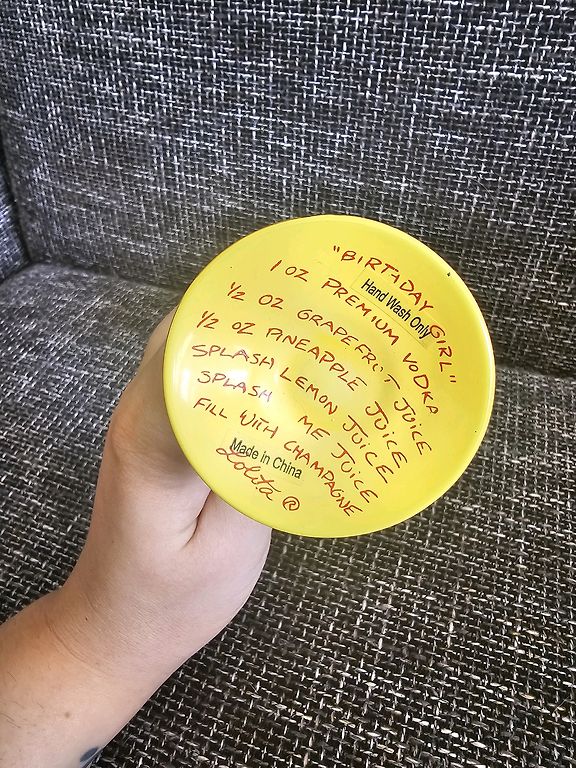 "BIRTHDAY GIRL"
Hand Wash Only
1 OZ PREMIUM VODKA
1/2 OZ GRAPEFRUIT JUICE
1/2 OZ PINEAPPLE JUICE
SPLASH LEMON JUICE
SPLASH ME JUICE
FILL WITH CHAMPAGNE
Made in China
Lolita ®